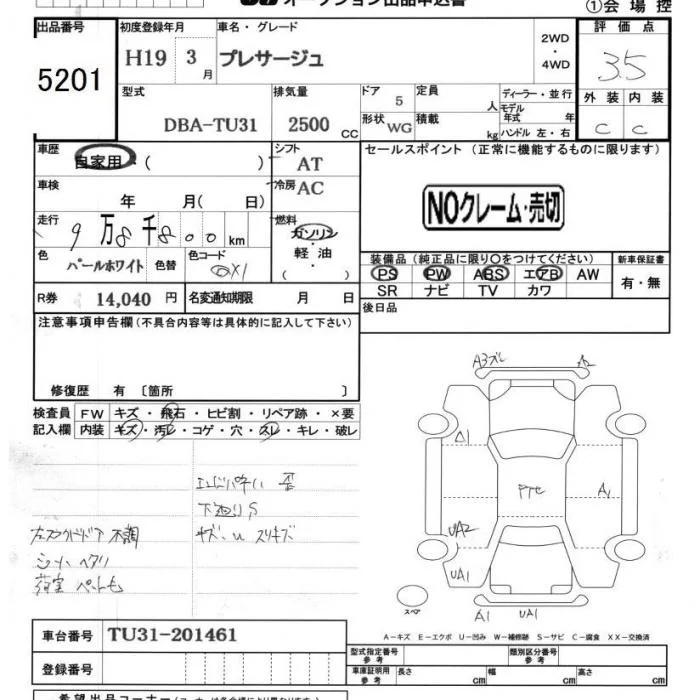 オークション出品申込書
①会場控
出品番号
5201
初度登録年月
H19 3月
車名・グレード
プレサージュ
2WD
・
4WD
評価点
3.5
外装 内装
C C
型式
DBA-TU31
排気量
2500 CC
ドア 5
定員 人
形状 WG
積載 kg
ディーラー・並行
モデル年式 年
ハンドル 左・右
車歴
自家用・( )
シフト
AT
車検
年 月( 日)
冷房 AC
走行
9万8千800km
燃料
ガソリン
軽油
( )
色
パールホワイト
色替
色コード
QX1
R券 14,040 円
名変通知期限 月 日
セールスポイント (正常に機能するものに限ります)
NOクレーム・売切
装備品 (純正品に限り○をつけてください)
PS PW ABS エアB AW
SR ナビ TV カワ
新車保証書
有・無
後日品
注意事項申告欄 (不具合内容等は具体的に記入して下さい)
修復歴 有 〔箇所 〕
検査員記入欄
FW キズ・飛石・ヒビ割・リペア跡・×要
内装 キズ・汚レ・コゲ・穴・スレ・キレ・破レ
下廻りS
キズ・U スリキズ
左スライドドア 不調
シート ヘタリ
荷室 ペット毛
A3ズレ
A2
A1
A1
UA2
UA1
A1
UA1
スペア
A-キズ E-エクボ U-凹み W-補修跡 S-サビ C-腐食 XX-交換済
車台番号 TU31-201461
登録番号
型式指定番号 参考
類別区分番号 参考
車庫証明用 参考
長さ cm 幅 cm 高さ cm
希望出品コーナー